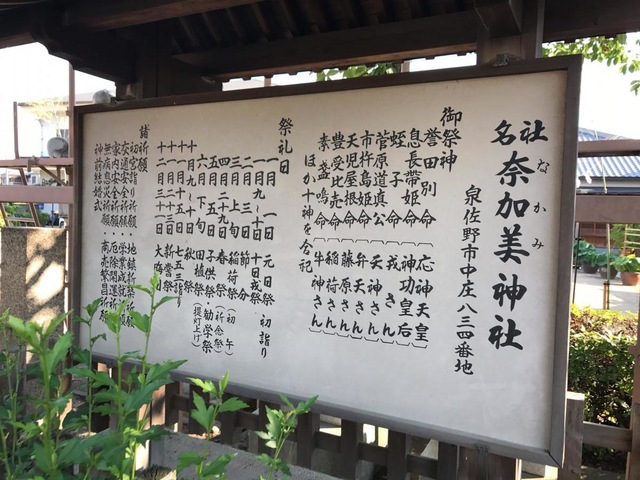 名社 奈加美神社
なかみ
泉佐野市中庄八三四番地
御祭神
誉田別命（応神天皇）
息長帯姫命（神功皇后）
蛭子命（戎さん）
菅原道真公（天神さん）
市杵島姫命（弁天さん）
天児屋根命（藤原さん）
豊受比売命（稲荷さん）
素盞嗚命（牛神さん）
ほか十神を合祀
祭礼日
一月一日 元旦祭 初詣り
一月九〜十一日 十日戎祭
二月 節分
三月上旬 稲荷祭（初午）
四月二十九日 春祭（祈念祭）
五月五日 子供祭 勧学祭
六月下旬 田植祭（提灯上げ）
十月 秋祭
十一月十五日 七五三詣り
十一月二十三日 新嘗祭
十二月三十一日 大晦日
諸祈願
初宮詣り祈願 地鎮祈願
交通安全祈願 学業成就
家内安全祈願 厄除開運祈願
無病息災祈願 商売繁昌祈願
神前結婚式